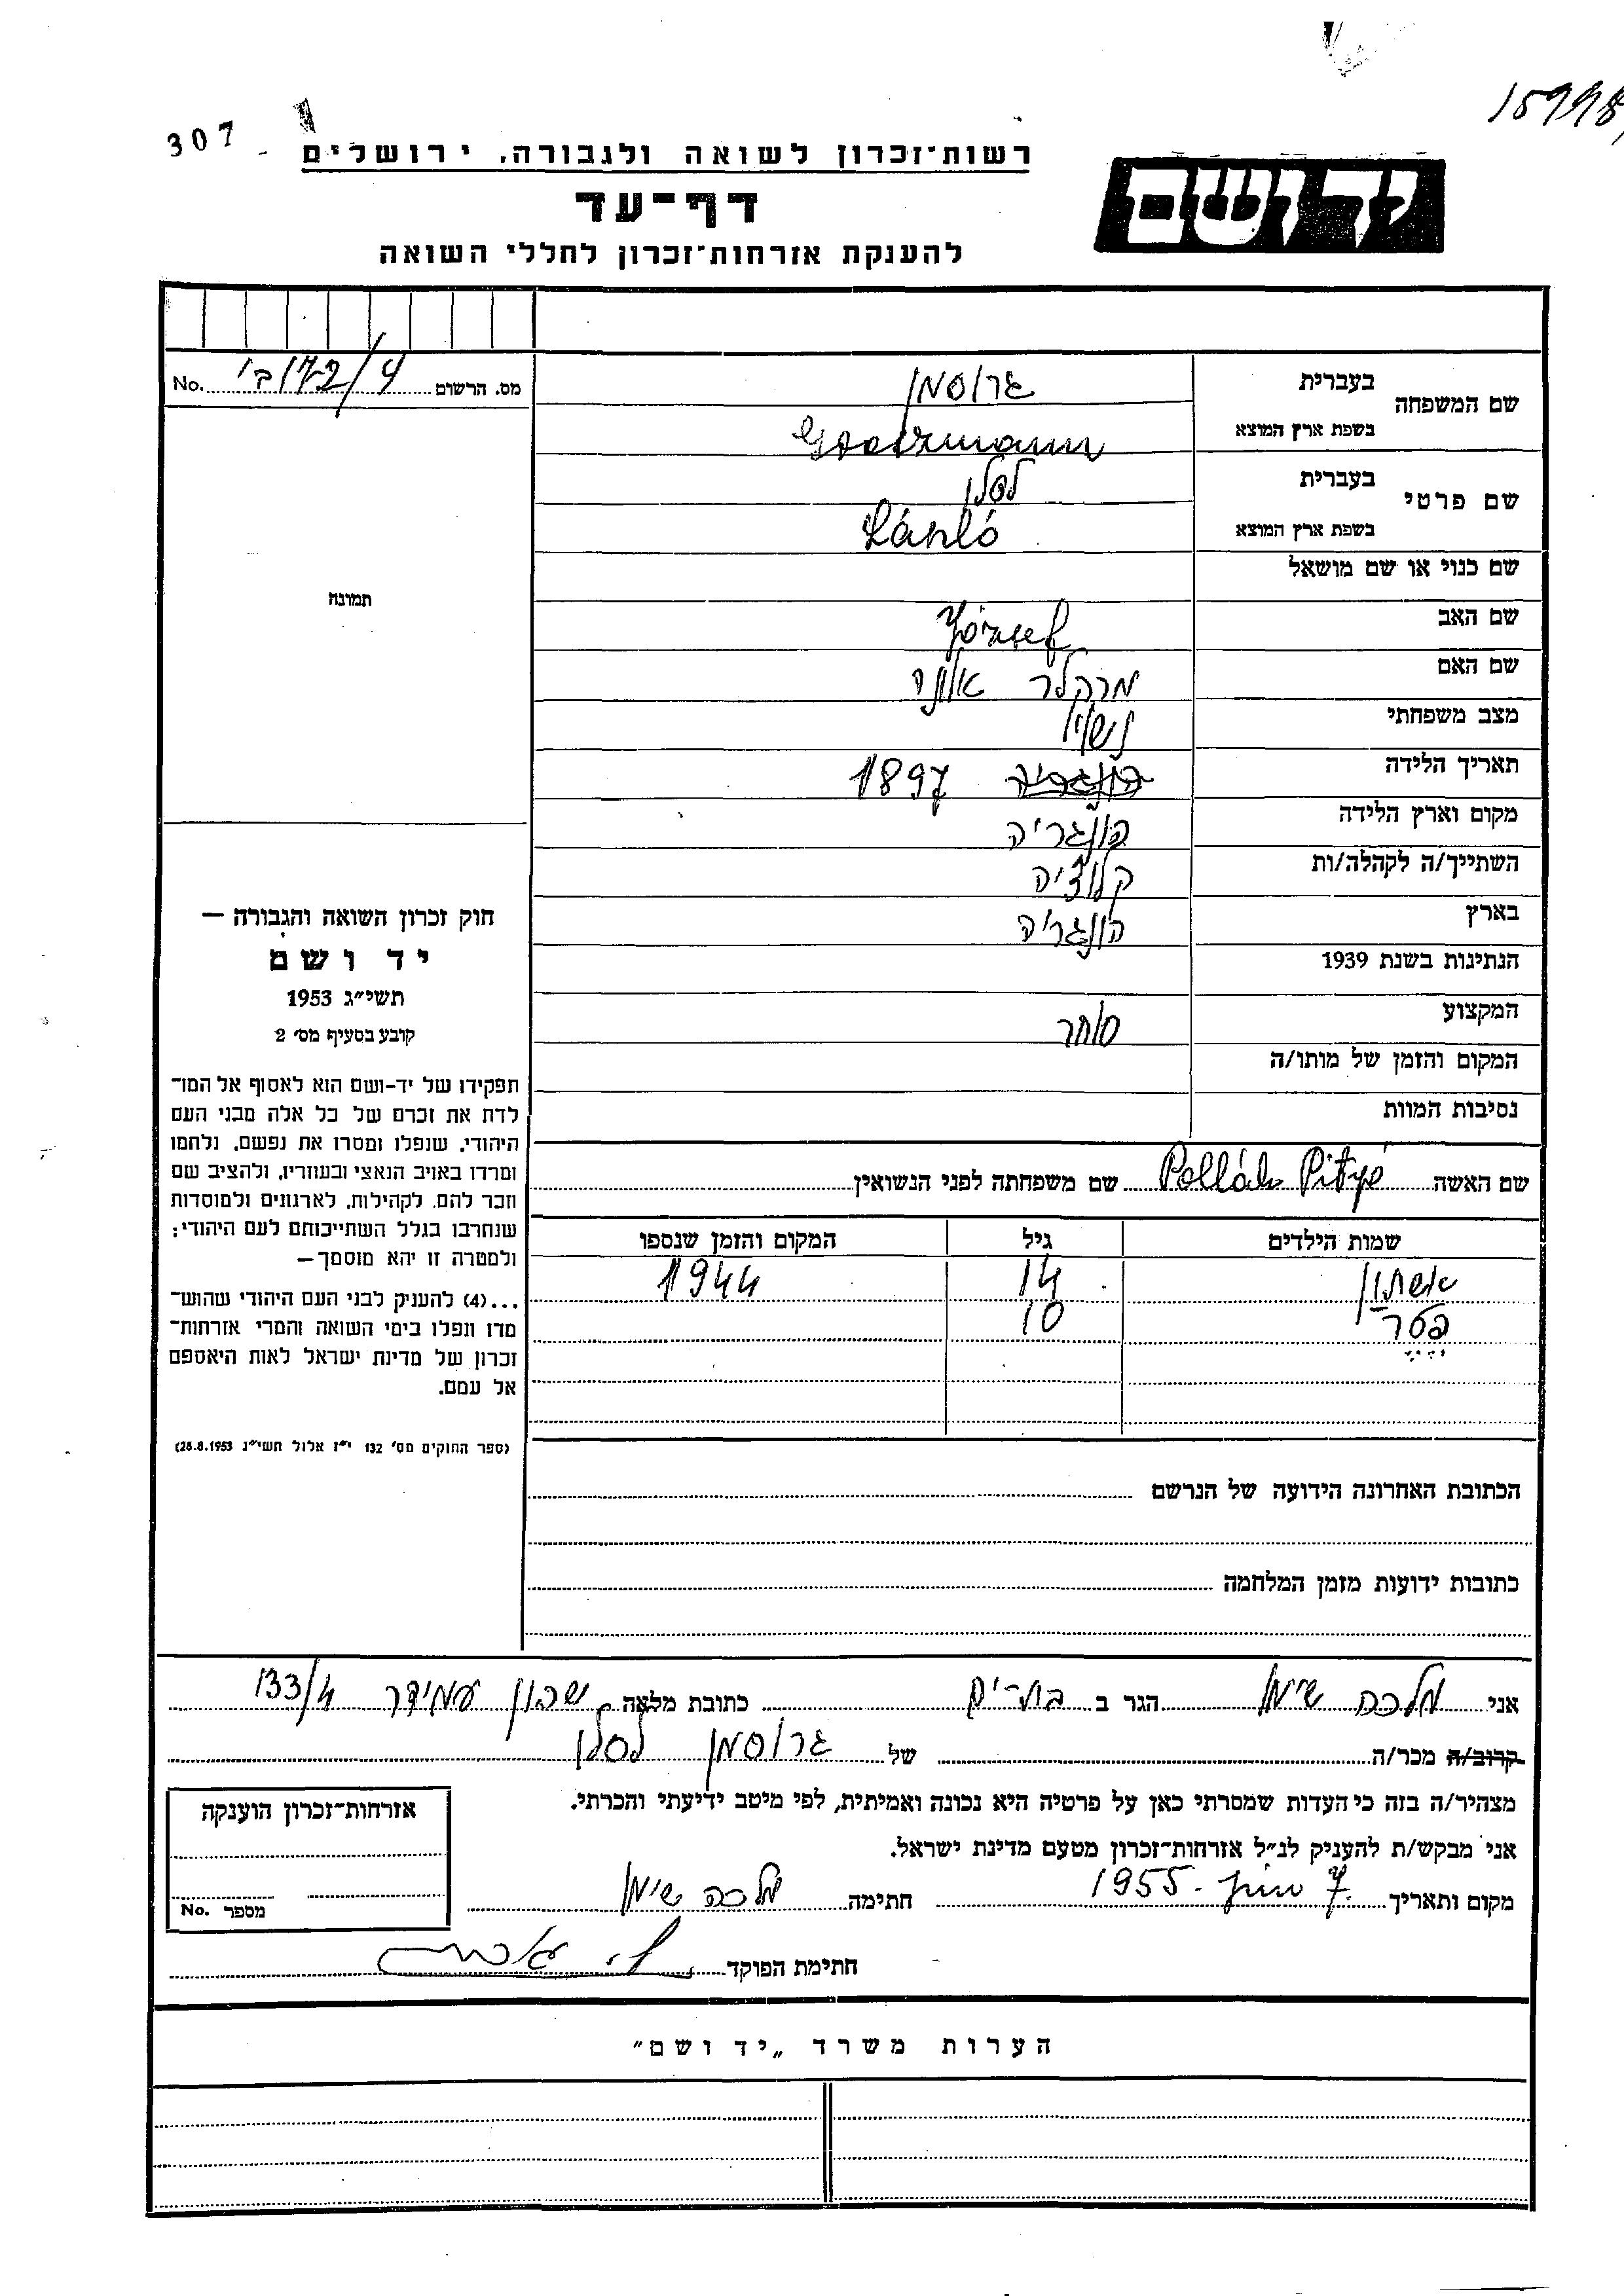 307
15998
רשות־זכרון לשואה ולגבורה, ירושלים
דף־עד
להענקת אזרחות־זכרון לחללי השואה
ידושם
No. מס. הרשום
שם המשפחה בעברית גרוסמן
בשפת ארץ המוצא Grossmann
שם פרטי בעברית לסלו
בשפת ארץ המוצא László
שם כנוי או שם מושאל
תמונה
שם האב József
שם האם מרקלר אלונה
מצב משפחתי נשוי
תאריך הלידה הונגריה 1897
מקום וארץ הלידה הונגריה
השתייך/ה לקהלה/ות
בארץ הונגריה
הנתינות בשנת 1939
המקצוע סוחר
המקום והזמן של מותו/ה
נסיבות המוות
חוק זכרון השואה והגבורה —
יד ושם
תשי״ג 1953
קובע בסעיף מס׳ 2
תפקידו של יד-ושם הוא לאסוף אל המו־
לדת את זכרם של כל אלה מבני העם
היהודי, שנפלו ומסרו את נפשם, נלחמו
ומרדו באויב הנאצי ובעוזריו, ולהציב שם
וזכר להם, לקהילות, לארגונים ולמוסדות
שנחרבו בגלל השתייכותם לעם היהודי;
ולמטרה זו יהא מוסמך—
...(4) להעניק לבני העם היהודי שהוש־
מדו ונפלו בימי השואה והמרי אזרחות־
זכרון של מדינת ישראל לאות היאספם
אל עמם.
(ספר החוקים מס׳ 132 י״ז אלול תשי״ג 28.8.1953)
שם האשה Pollák שם משפחתה לפני הנשואין
שמות הילדים גיל המקום והזמן שנספו
אשתון 14 1944
פטר 10
הכתובת האחרונה הידועה של הנרשם
כתובות ידועות מזמן המלחמה
אני מלכה שימן הגר ב בת-ים כתובת מלאה שכון עמידר 133/4
קרוב/ה מכר/ה של גרוסמן לסלו
מצהיר/ה בזה כי העדות שמסרתי כאן על פרטיה היא נכונה ואמיתית, לפי מיטב ידיעתי והכרתי.
אני מבקש/ת להעניק לנ״ל אזרחות־זכרון מטעם מדינת ישראל.
מקום ותאריך 1955 חתימה מלכה שימן
חתימת הפוקד
אזרחות־זכרון הוענקה
No. מספר
הערות משרד „יד ושם״